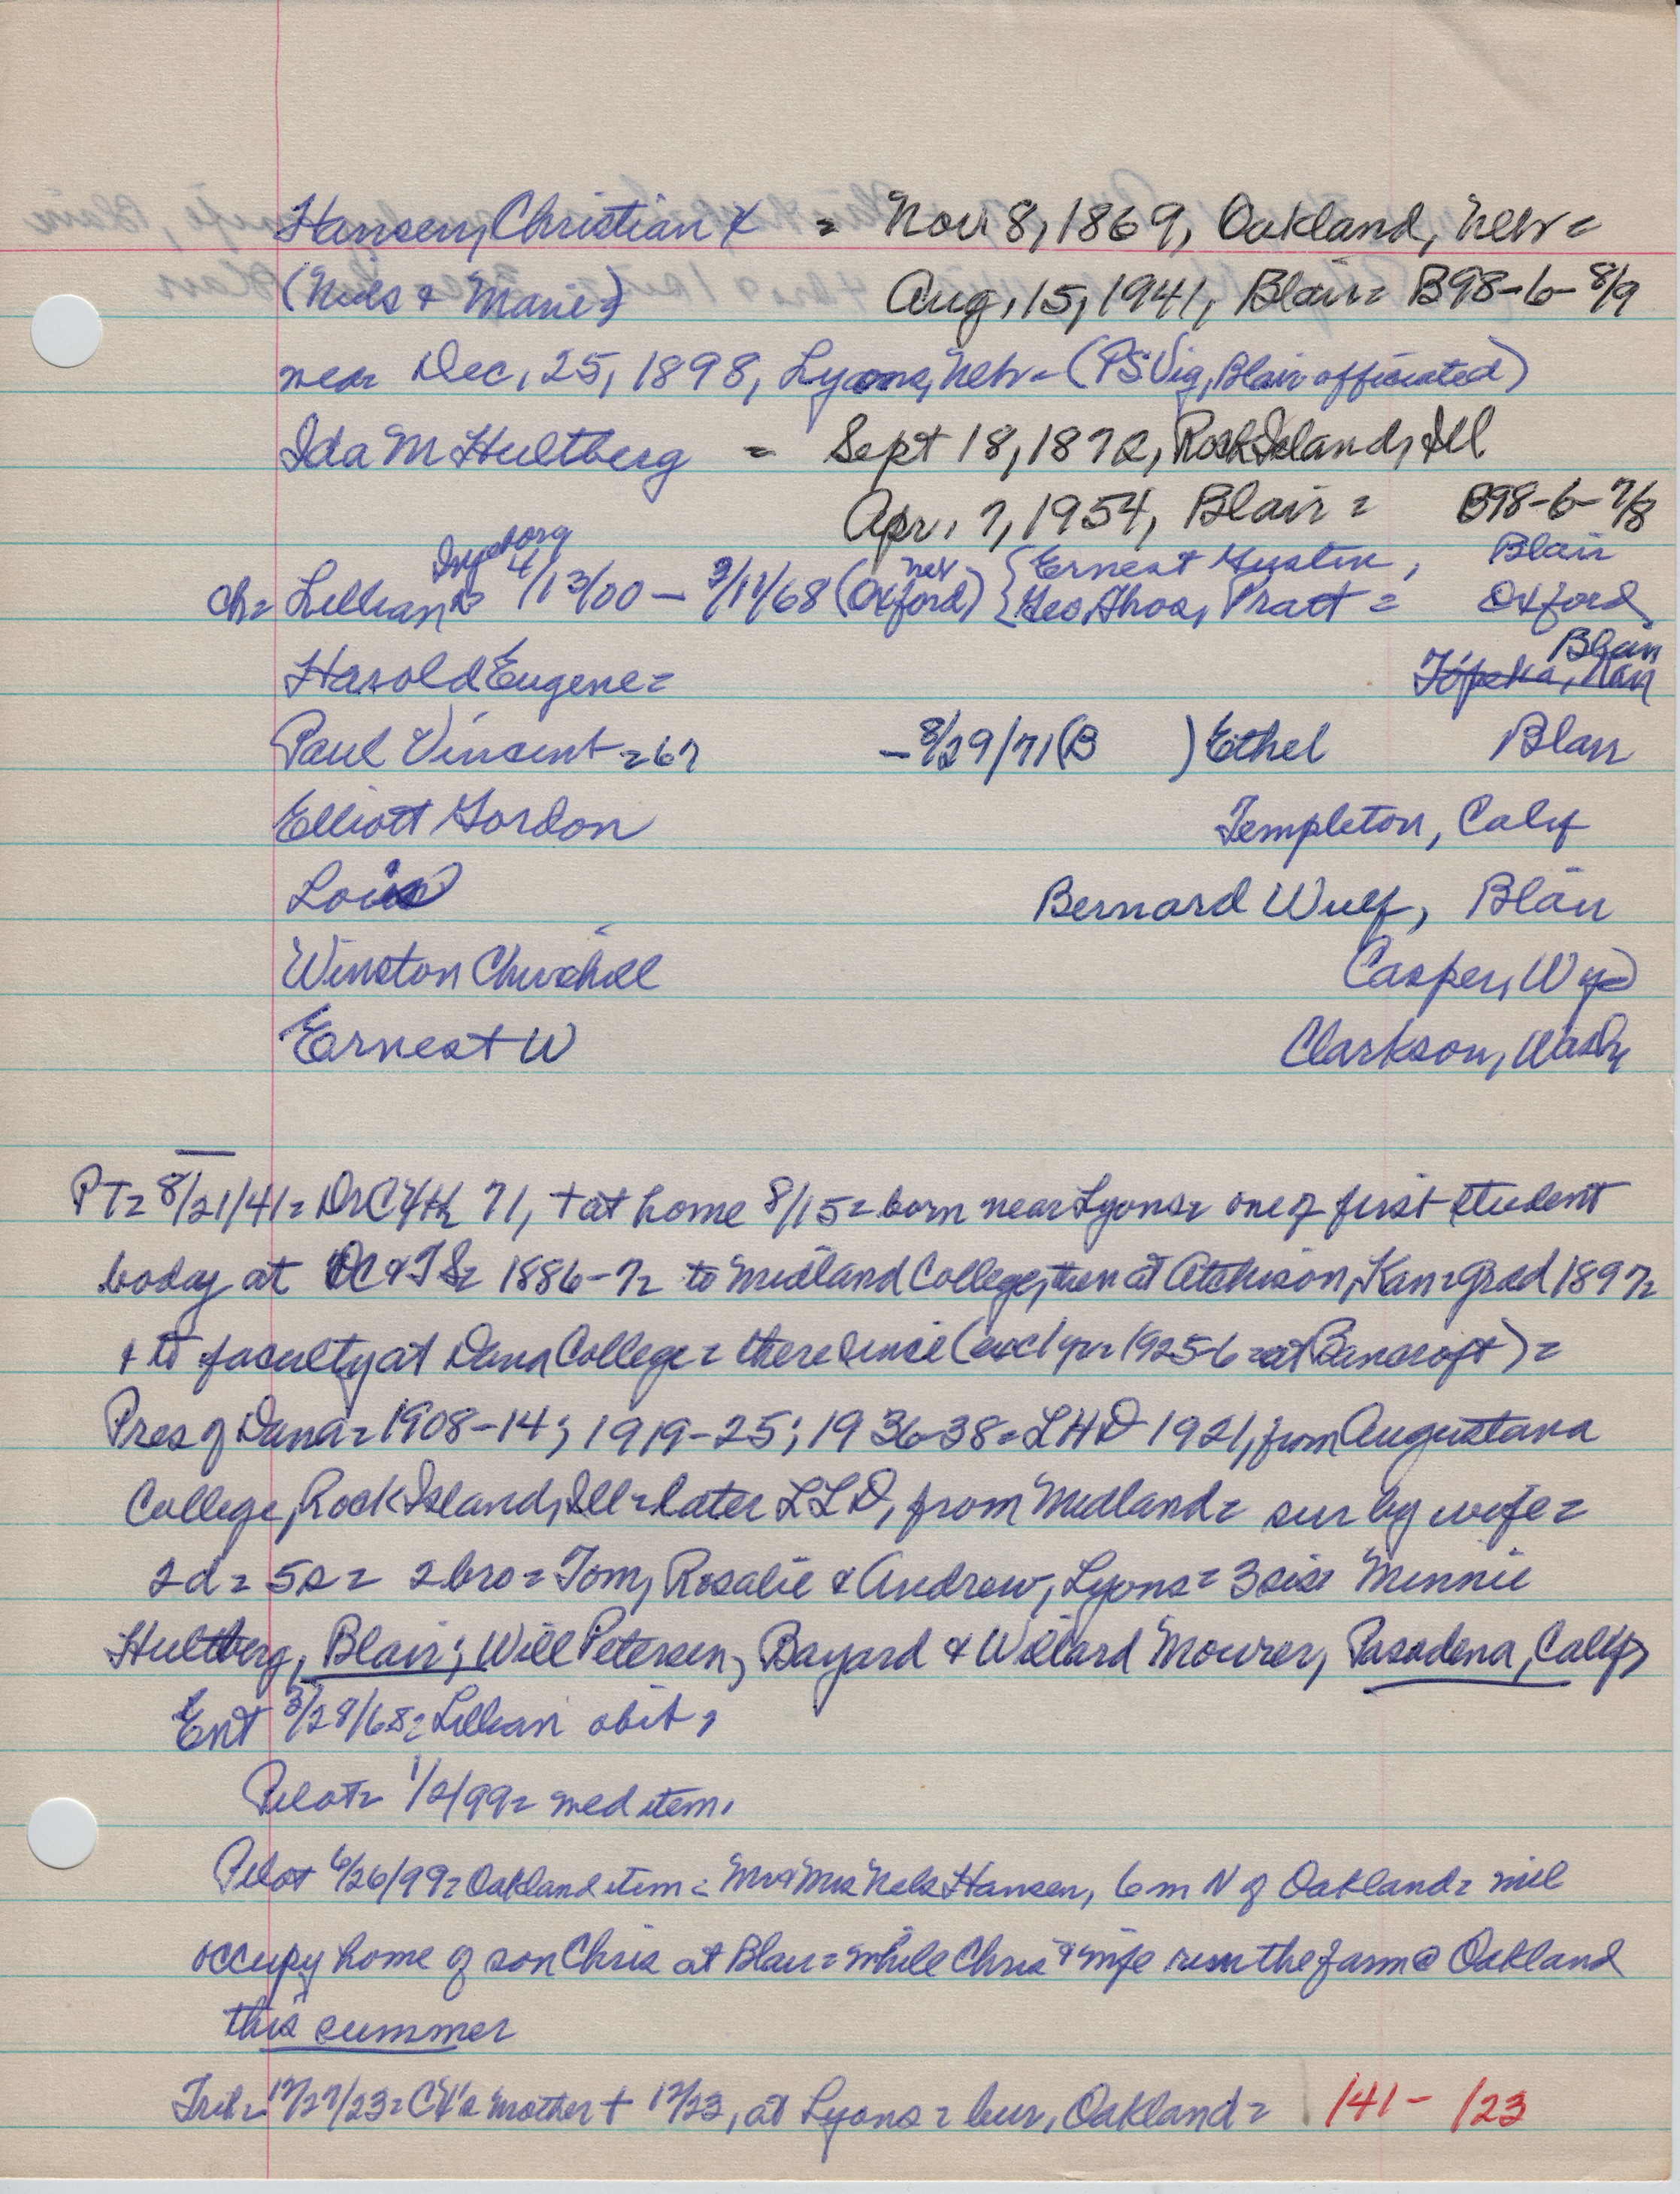 Hansen, Christian X = Nov 8, 1869, Oakland, Nebr =
(Niels & Marie) Aug, 15, 1941, Blair = B98-6-8/9
near Dec, 25, 1898, Lyons, Nebr = (PS Vig, Blair officiated)
Ida M Hultberg = Sept 18, 1872, Rock Island, Ill
Apr, 7, 1954, Blair = B98-6-7/8
Ingeborg
nex { Ernest Gustin, Blair
ch = Lillian 4/13/00 - 3/11/68 (Oxford) { Geo Thos, Pratt = Oxford
Blair
Harold Eugene = Topeka, Kan
Paul Vincent = 67 - 8/29/71 (B ) Ethel Blair
Elliott Gordon Templeton, Calif
Lois Bernard Wulf, Blair
Winston Churchill Casper, Wyo
Ernest W Clarkson, Wash
PT = 8/21/41 = Dr C X H 71, + at home 8/15 = born near Lyons = one of first student
boday at DC & TS = 1886-7 = to Midland College, then at Atchison, Kan = grad 1897 =
& to faculty at Dana College = there since (exc 1 yr = 1925-6 = at Bancroft) =
Pres of Dana = 1908-14; 1919-25; 1936-38 = LHD 1921, from Augustana
College, Rock Island, Ill = later LLD, from Midland = sur by wife =
2d = 5s = 2 bro = Tom, Rosalie & Andrew, Lyons = 3 sis = Minnie
Hultberg, Blair; Will Petersen, Bayard & Willard Mowrer, Pasadena, Calif
Ent 3/28/68 = Lillian obit,
Pilot = 1/2/99 = wed item,
Pilot 6/26/99 = Oakland item = Mr & Mrs Nels Hansen, 6 m N of Oakland = will
occupy home of son Chris at Blair = while Chris & wife run the farm @ Oakland
this summer
Trib = 12/27/23 = CX's mother + 12/23, at Lyons = bur, Oakland = 141 - 123